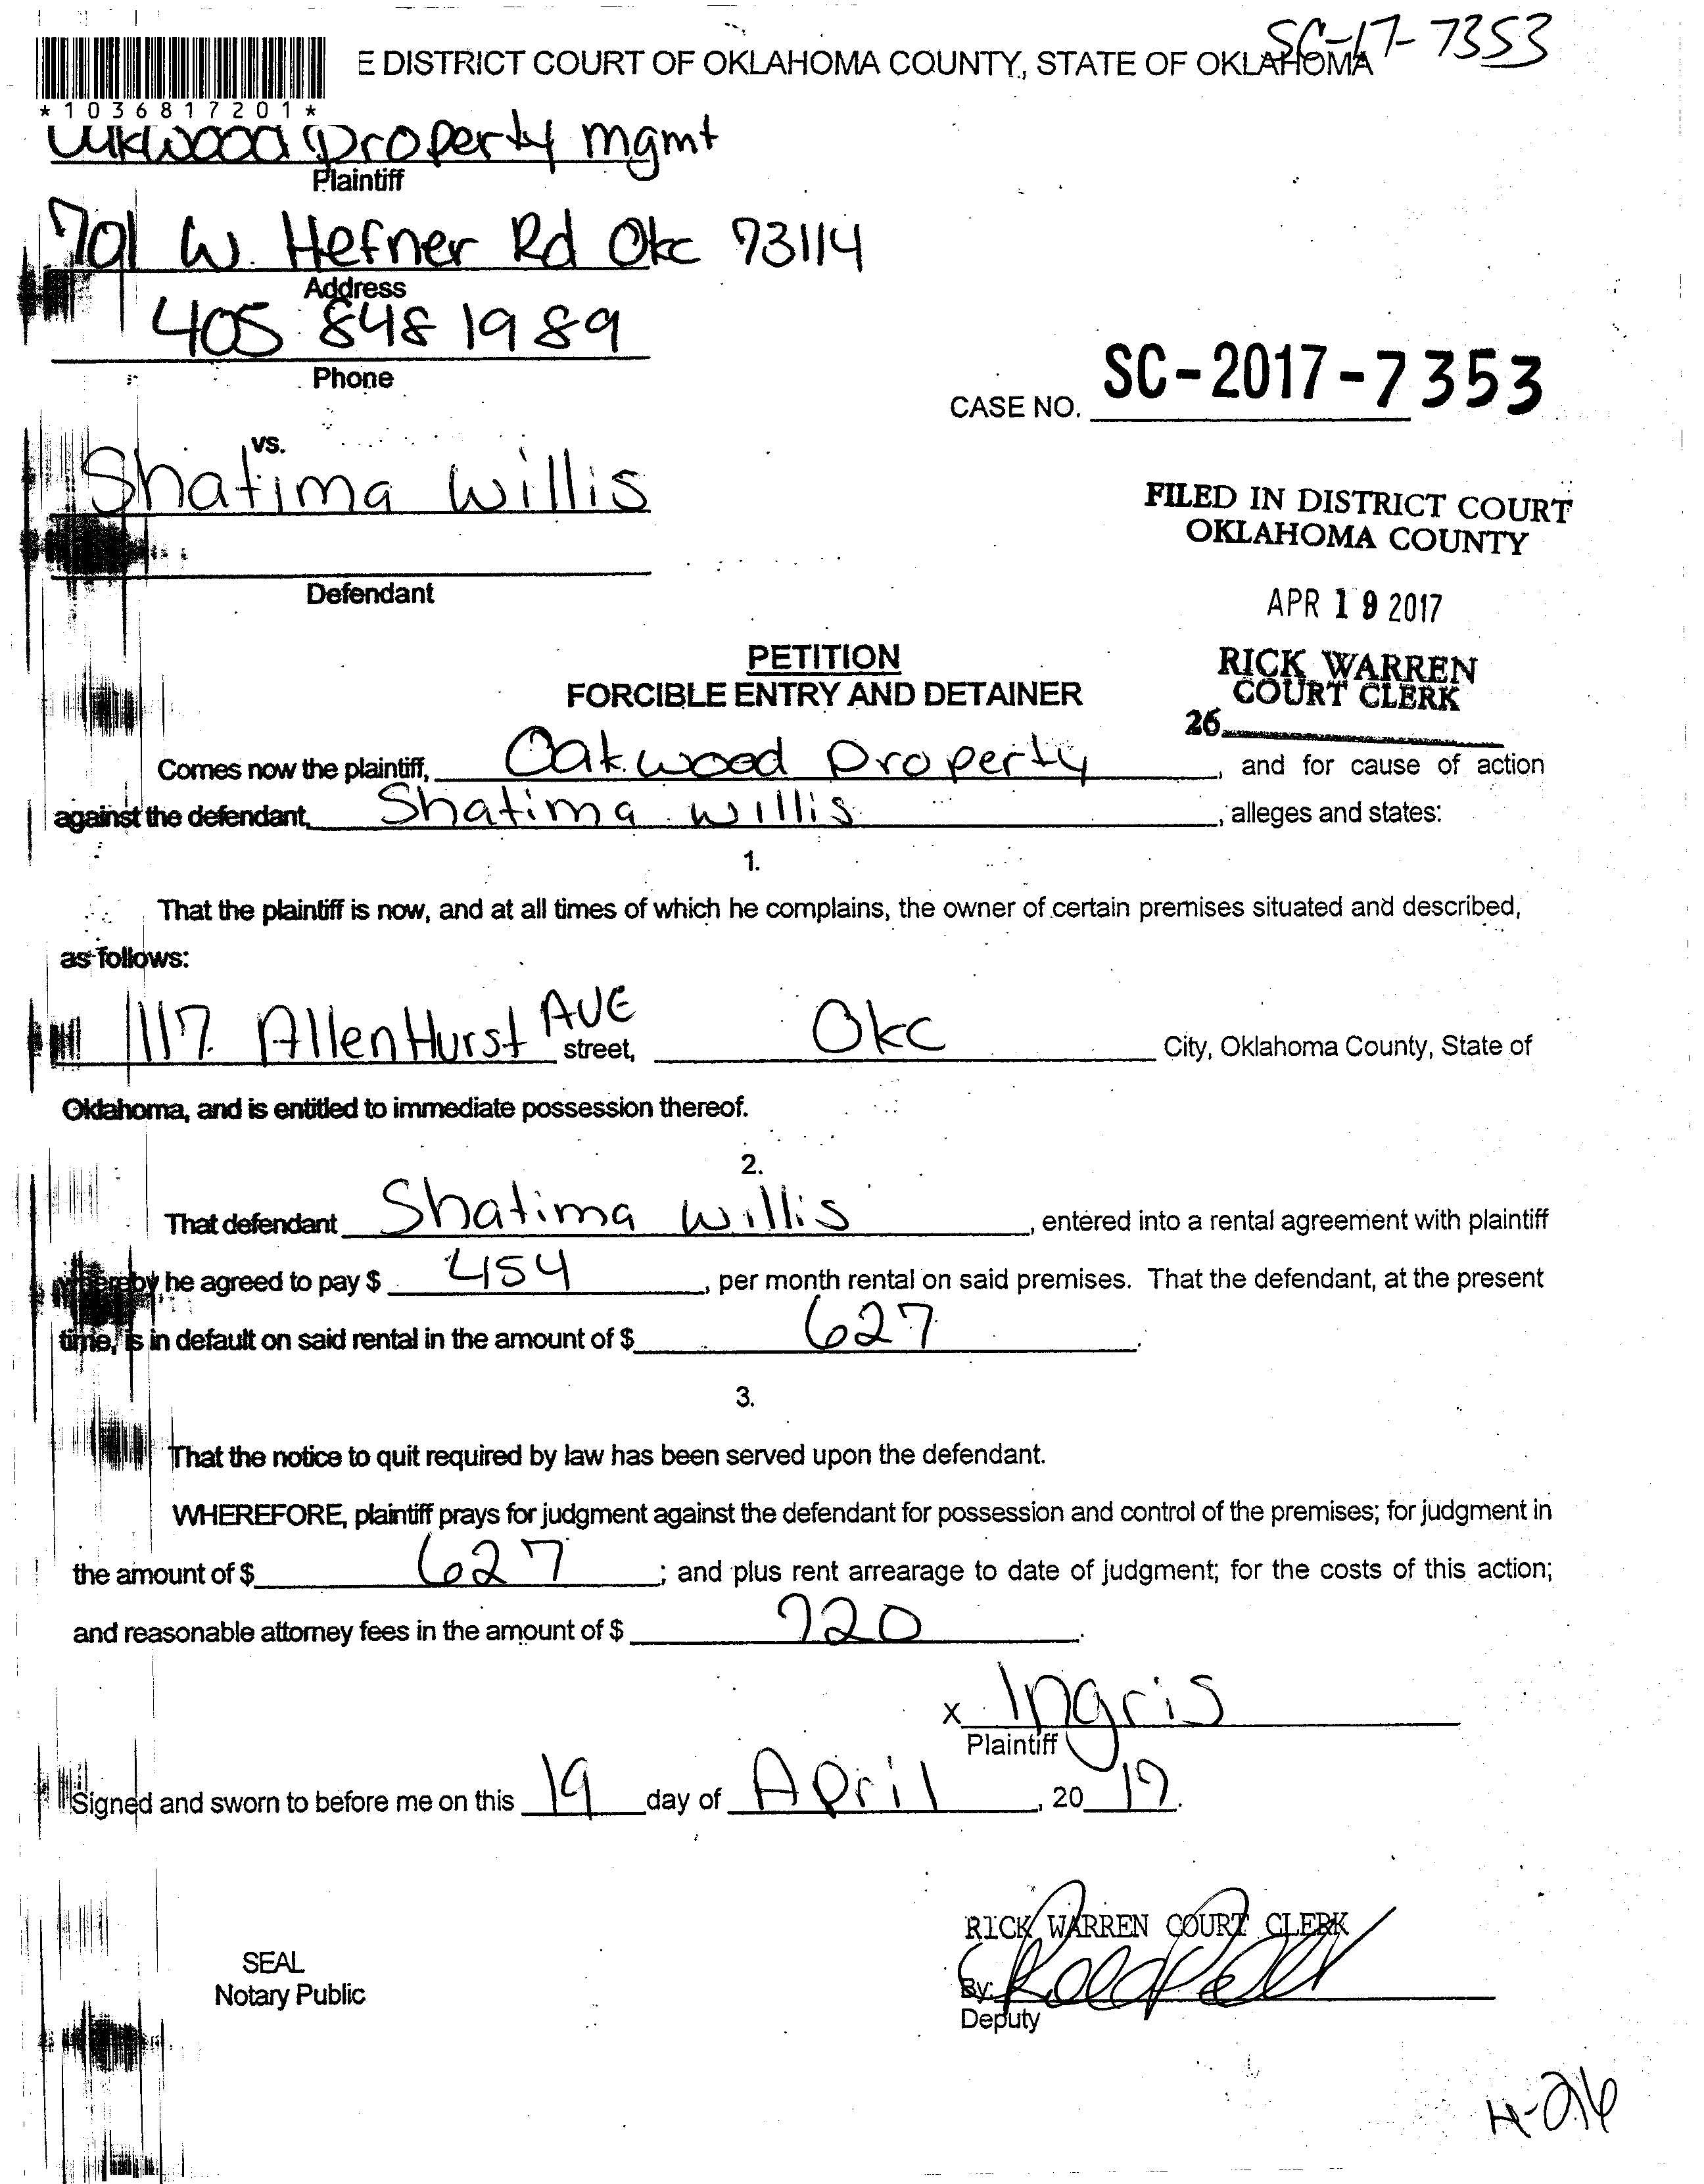 SC-17-7353
E DISTRICT COURT OF OKLAHOMA COUNTY, STATE OF OKLAHOMA
*1036817201*
Oakwood Property mgmt
Plaintiff
701 W. Hefner Rd Okc 73114
Address
405 848 1989
Phone
CASE NO. SC-2017-7353
vs.
Shatima Willis
Defendant
FILED IN DISTRICT COURT
OKLAHOMA COUNTY
APR 19 2017
RICK WARREN
COURT CLERK
26
PETITION
FORCIBLE ENTRY AND DETAINER
Comes now the plaintiff, Oakwood Property, and for cause of action
against the defendant, Shatima Willis, alleges and states:
1.
That the plaintiff is now, and at all times of which he complains, the owner of certain premises situated and described,
as follows:
1117 AllenHurst AVE street, Okc City, Oklahoma County, State of
Oklahoma, and is entitled to immediate possession thereof.
2.
That defendant Shatima Willis, entered into a rental agreement with plaintiff
whereby he agreed to pay $ 454, per month rental on said premises. That the defendant, at the present
time, is in default on said rental in the amount of $ 627.
3.
That the notice to quit required by law has been served upon the defendant.
WHEREFORE, plaintiff prays for judgment against the defendant for possession and control of the premises; for judgment in
the amount of $ 627; and plus rent arrearage to date of judgment; for the costs of this action;
and reasonable attorney fees in the amount of $ 720.
x Ingris
Plaintiff
Signed and sworn to before me on this 19 day of April, 20 17.
RICK WARREN COURT CLERK
SEAL
Notary Public
By:
Deputy
4-26